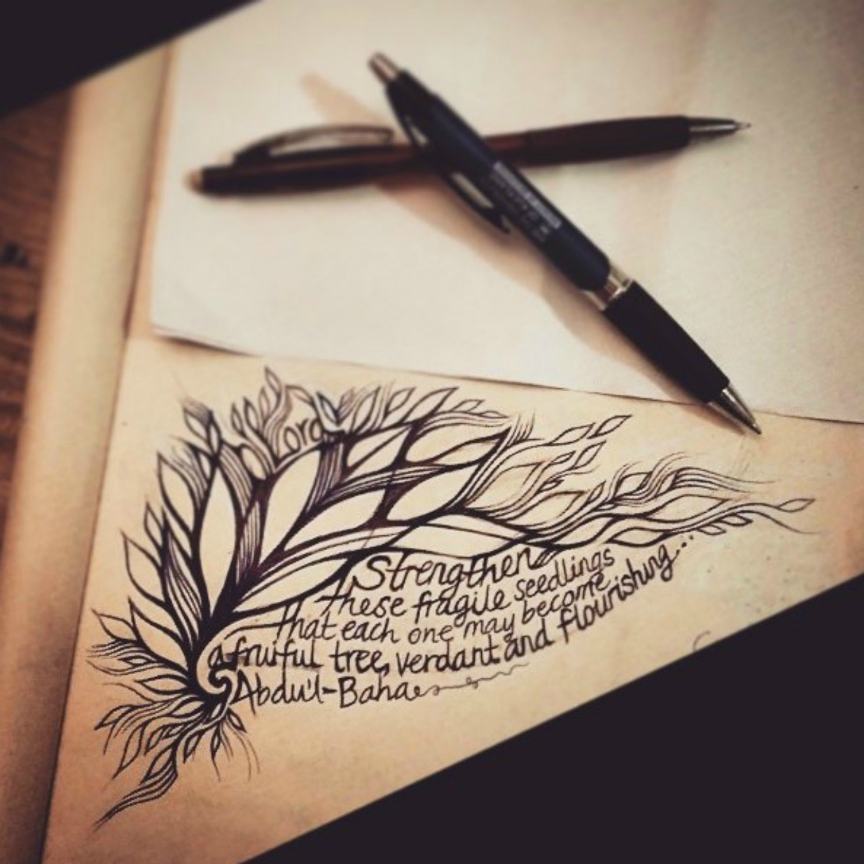 O Lord
Strengthen
these fragile seedlings
that each one may become
a fruiful tree, verdant and flourishing...
Abdu'l-Baha